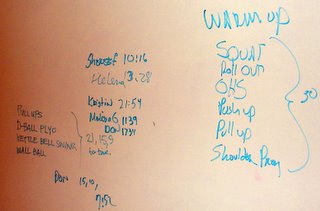 WARM UP
SQUAT
Roll OUT
OHS
Push up
Pull up
Shoulder Press
30
10:16
Helena 13:28
Kristin 21:54
11:39
Dan 17:31
PULL UPS
D-BALL PLYO
KETTLE BELL SWING
WALL BALL
21, 15, 9
for time.
Dan 15, 10,